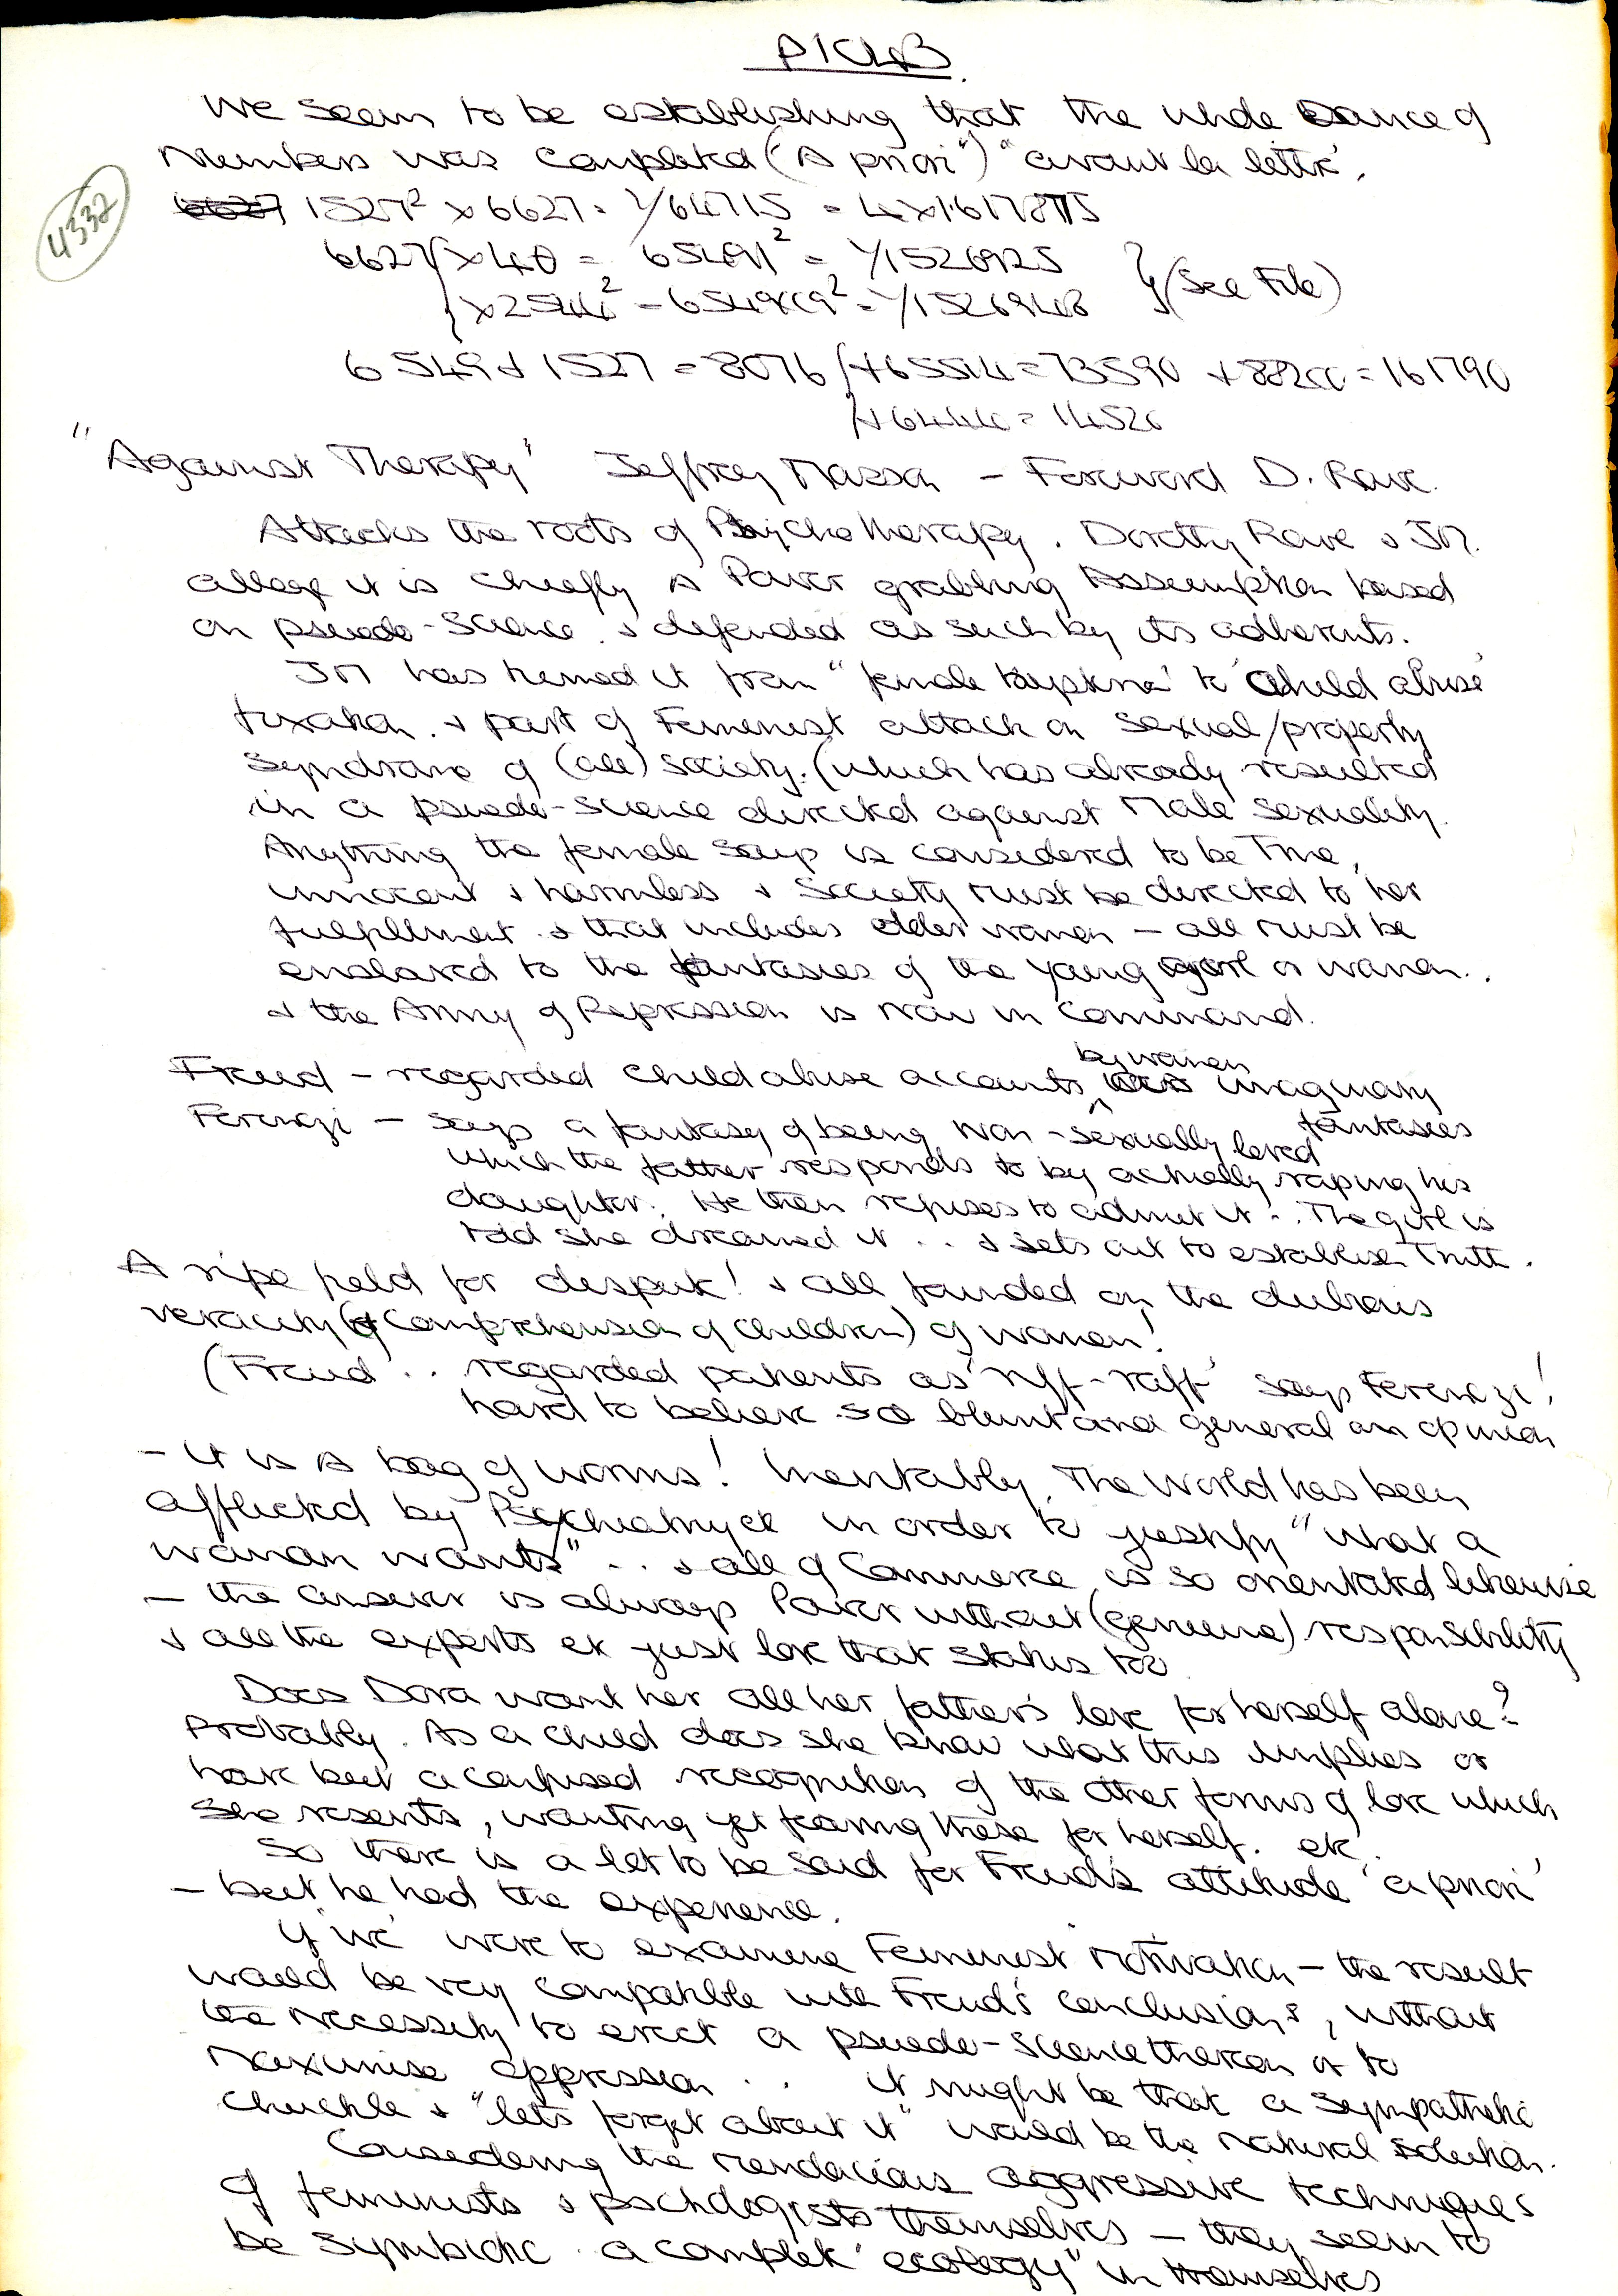 We seem to be establishing that the whole Dance of
Numbers was Completed ("A priori") "avant la lettre".
4332
6627 1527² x 6627 =
6627 x 40 = 65491² = (See File)
6549 + 1527 = 8076 + 65514 = 73590 + 88200 = 161790
+ 6444 = 14520
"Against Therapy" Jeffrey Masson – Foreword D. Rowe.
Attacks the roots of Psychotherapy. Dorothy Rowe & JM.
allege it is chiefly a Power grabbing Assumption based
on pseudo-science. & defended as such by its adherents.
JM has turned it from "female to "Child abuse"
fixation. & part of Feminist attack on sexual/property
Syndrome of (all) society. (which has already resulted
in a pseudo-science directed against Male Sexuality.
Anything the female says is considered to be True,
innocent & harmless & Society must be directed to her
fulfillment. & that includes older women – all must be
enslaved to the fantasies of the young girl or woman..
& the Army of Repression is now in Command.
Freud – regarded Child abuse accounts by women as imaginary
fantasies
Ferenzi – says a fantasy of being non-sexually loved
which the father responds to by actually raping his
daughter. He then refuses to admit it.. The girl is
told she dreamed it . . & sets out to establish Truth.
A ripe field for dispute! & all founded on the dubious
veracity (of Comprehension of Children) of women!
(Freud . . regarded patients as "riff-raff" says Ferenzi!
hard to believe so blunt and general an opinion
– it is a bag of worms! Inevitably, The World has been
afflicted by Psychiatry etc in order to justify "what a
woman wants" . . & all of Commerce is so orientated likewise
– the answer is always Power without (genuine) responsibility
& all the experts etc just love that status too
Does Dora want her all her father's love for herself alone?
Probably. As a child does she know what this implies or
have but a confused recognition of the other forms of love which
she resents, wanting yet fearing these for herself. etc.
So there is a lot to be said for Freud's attitude 'a priori'
– but he had the experience.
If 'we' were to examine Feminist motivation – the result
would be very compatible with Freud's conclusions, without
the necessity to erect a pseudo-science thereon or to
Maximise oppression . . it might be that a sympathetic
chuckle & "lets forget about it" would be the natural solution.
Considering the mendacious aggressive techniques
of feminists & pschologists themselves – they seem to
be symbiotic a complete "ecology" in themselves